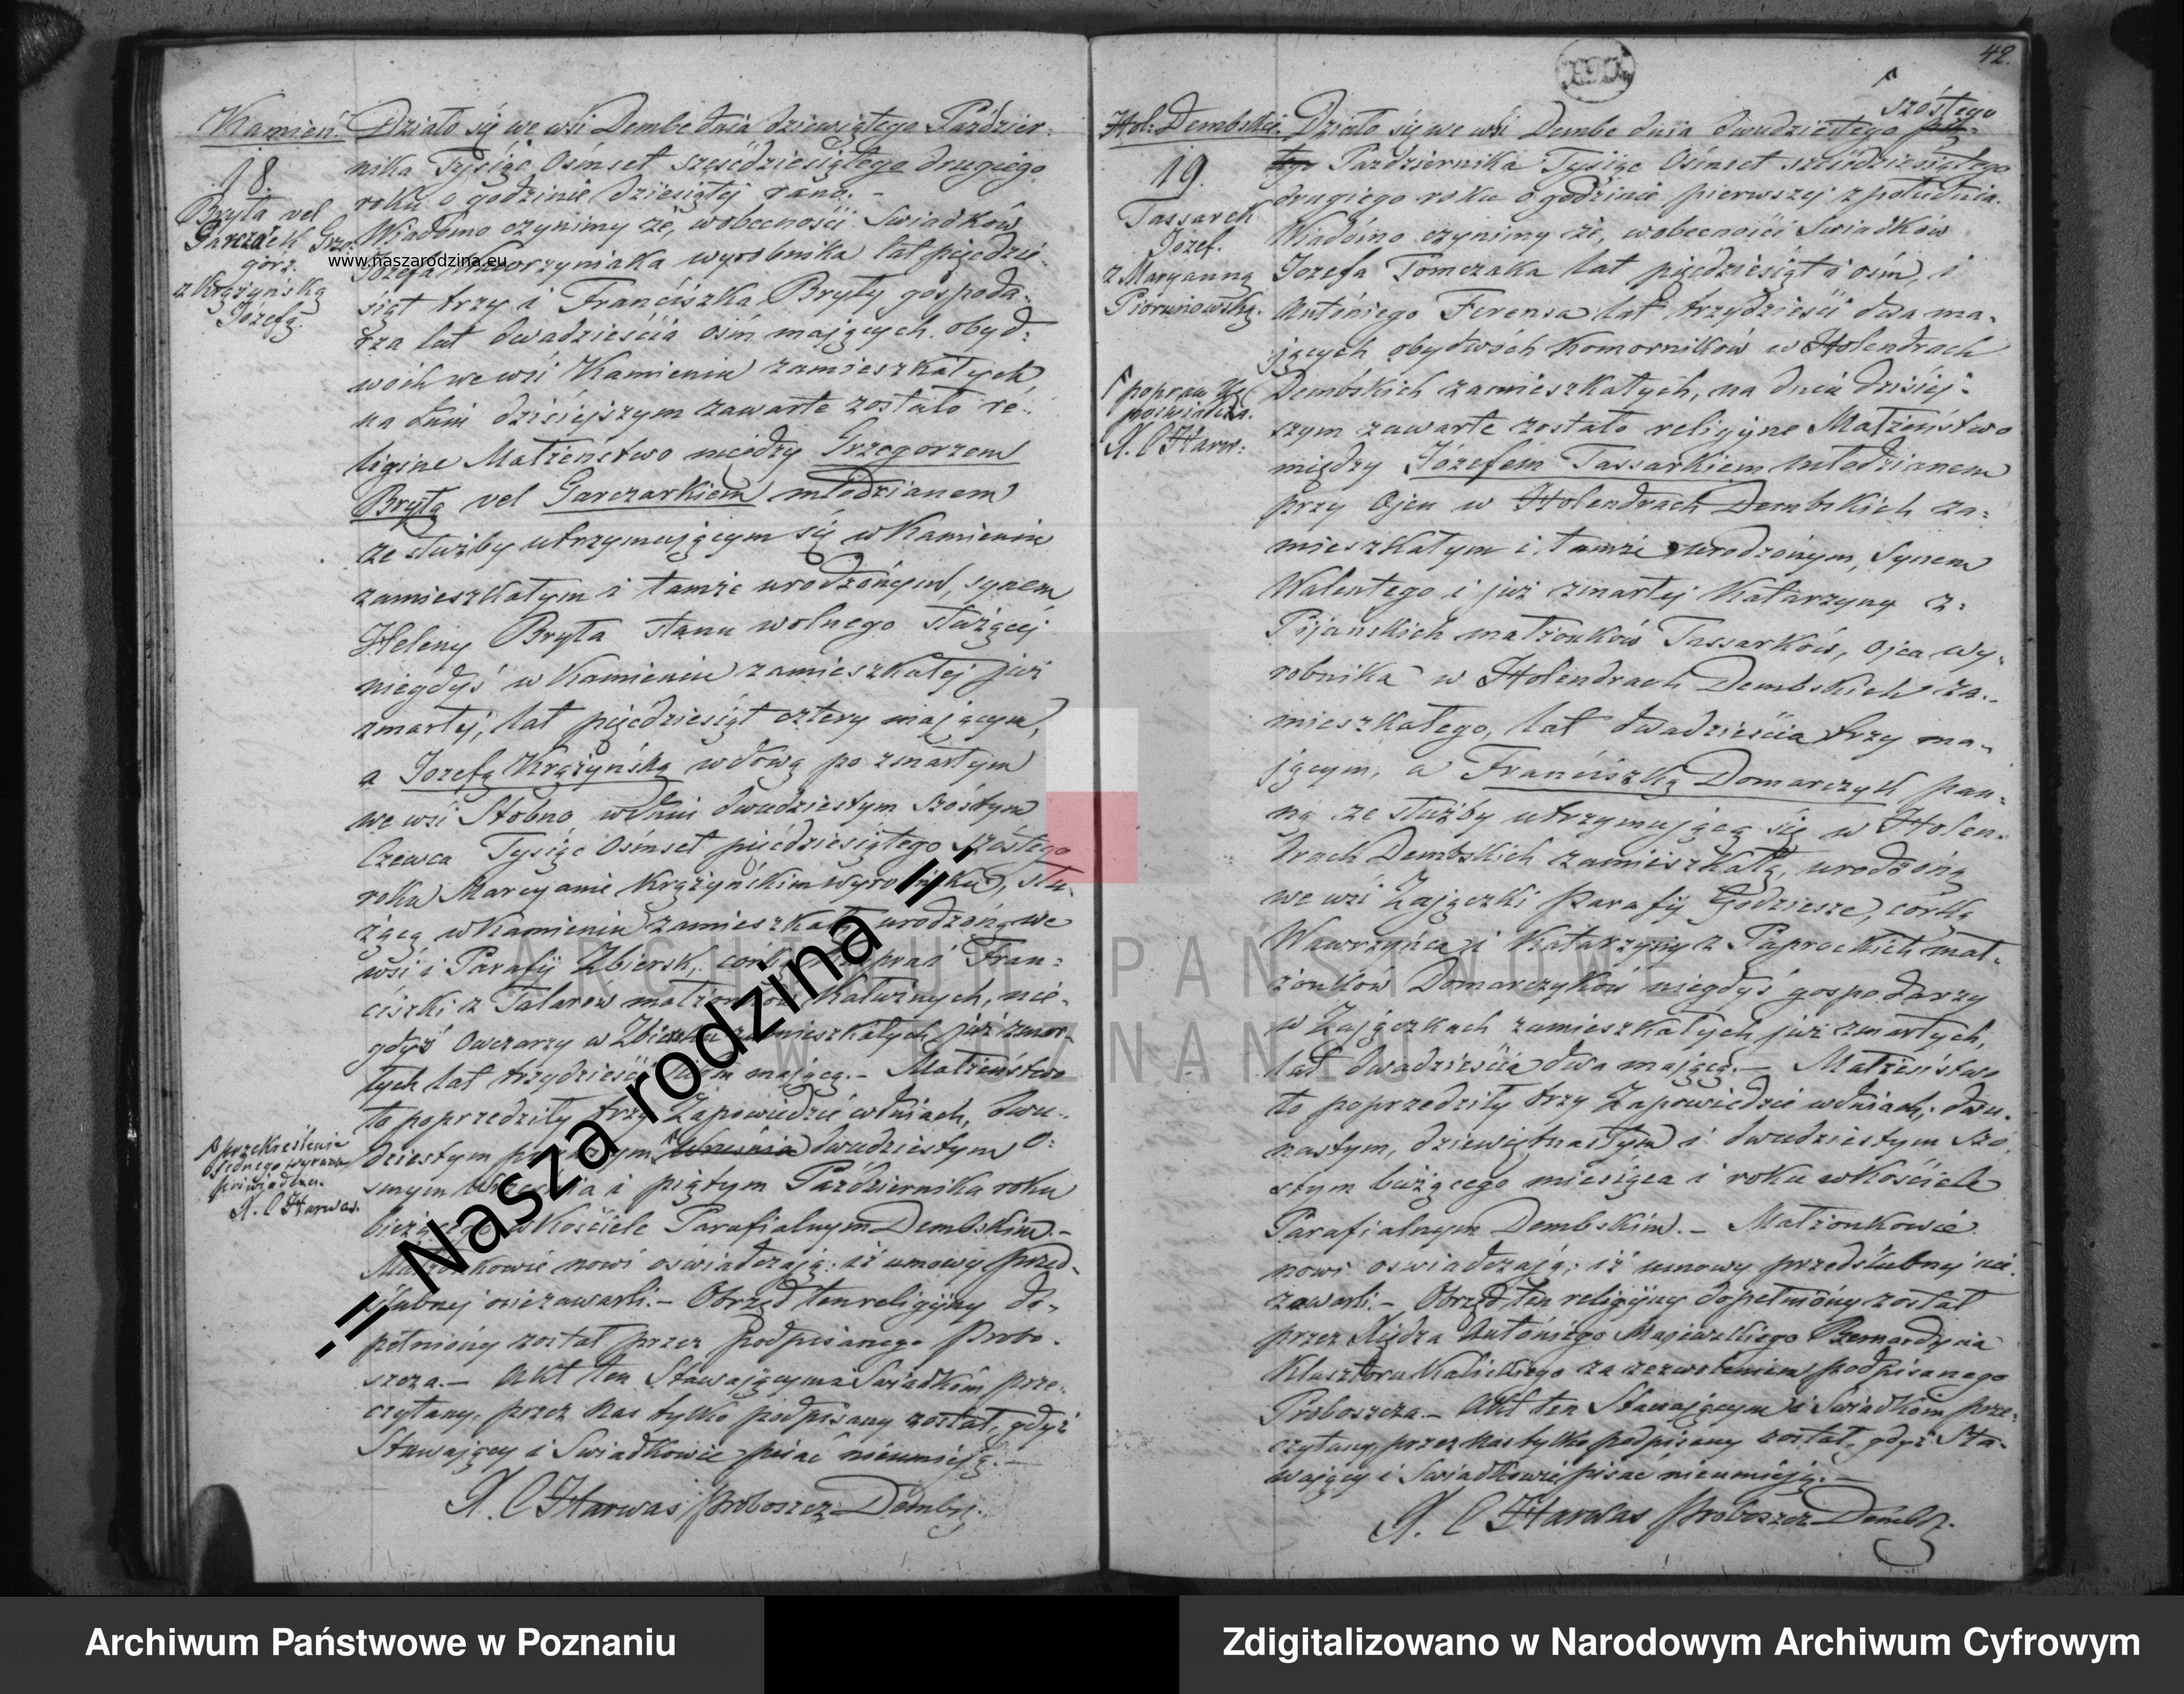 Kamień.
18.
Bryła vel
Garczarek Grze-
gorz.
z Krążyńską
Józefą.
www.naszarodzina.eu
Działo się we wsi Dembe dnia dziewiątego Paździer-
nika Tysiąc Ośmset sześćdziesiątego drugiego
roku o godzinie dziesiątej rano. -
Wiadomo czynimy że, wobecności Swiadków
Józefa Kaworzyniaka wyrobnika lat pięćdzie-
siąt trzy i Franciszka Bryły gospoda-
rza lat dwadzieścia ośm mających. obyd-
wóch we wsi Kamieniu zamieszkałych,
na dniu dzisiejszym zawarte zostało re-
ligine Małżeństwo między Grzegorzem
Bryłą vel Garczarkiem młodzianem
ze służby utrzymującym się w Kamieniu
zamieszkałym i tamże urodzonym, synem
Heleny Bryła stanu wolnego służącej
niegdyś w Kamieniu zamieszkałej już
zmarłej, lat pięćdziesiąt cztery mającym,
a Józefą Krążyńską wdową po zmarłym
we wsi Stobno w dniu dwudziestym szóstym
Czerwca Tysiąc Ośmset pięćdziesiątego szóstego
roku Marcyanie Krążyńskim wyrobniku, słu-
żącą w Kamieniu zamieszkałą urodzoną we
wsi i Parafij Zbiersk, córką Fran-
ciszki z Talarow małżonków Kałużnych, nie-
gdyś owczarzy w Zbiersku zamieszkałych już zmar-
łych lat trzydzieści mającą. - Małżeństwo
to poprzedziły trzy Zapowiedzie w dniach, dwu-
dziestym pierwszym Września dwudziestym ó-
smym Września i piątym Października roku
bieżącego w Kościele Parafialnym Dembskim. -
Małżonkowie nowi oświadczają: iż umowy przed-
ślubnej niezawarli. - Obrząd ten religijny do-
pełniony został przez podpisanego Probo-
szcza. - Akt ten Stawającym i Swiadkom prze-
czytany, przez nas tylko podpisany został, gdyż
Stawający i Swiadkowie pisać nieumieją. -
X. C Harwas Proboszcz Demby.
przekreślenie
jednego wyrazu
poświadcza.
X. C Harwas.
-= Nasza rodzina =-
42.
Hol: Dembskie.
19.
Tassarek
Józef.
z Maryanną
Piorunowską.
popraw
poświadcza.
X. C Harw:
szóstego
Działo się we wsi Dembe dnia dwudziestego pią-
tego Października Tysiąc Ośmset sześćdziesiątego
drugiego roku o godzinie pierwszej z południa.
Wiadomo czynimy że, wobecności Swiadków
Józefa Tomczaka lat pięćdziesiąt i ośm, i
Antoniego Ferensa lat trzydzieści dwa ma-
jących obydwóch Komorników w Holendrach
Dembskich zamieszkałych, na dniu dzisiej-
szym zawarte zostało religijne Małżeństwo
między Józefem Tassarkiem młodzianem
przy Ojcu w Holendrach Dembskich za-
mieszkałym i tamże urodzonym, Synem
Walentego i już zmarłej Katarzyny z-
Pijańskich małżonków Tassarków, ojca wy-
robnika w Holendrach Dembskich za-
mieszkałego, lat dwadzieścia trzy ma-
jącym, a Franciszką Domarczyk pan-
ną ze służby utrzymującą się w Holen-
drach Dembskich zamieszkałą, urodzoną
we wsi Zajączki Parafij Godziesze, córką
Wawrzyńca i Katarzyny z Paprockich mał-
żonków Domarczyków niegdyś gospodarzy
w Zajączkach zamieszkałych już zmarłych,
lat dwadzieścia dwa mającą. - Małżeństwo
to poprzedziły trzy Zapowiedzie w dniach, dwu-
nastym, dziewiętnastym i dwudziestym szó-
stym bieżącego miesiąca i roku w Kościele
Parafialnym Dembskim. - Małżonkowie
nowi oświadczają, iż umowy przedślubnej nie-
zawarli. - Obrząd ten religijny dopełniony został
przez Xiędza Antoniego Majewskiego Bernardyna
Klasztoru Kaliskiego za zezwoleniem podpisanego
Proboszcza. - Akt ten Stawającym i Swiadkom prze-
czytany, przez nas tylko podpisany został, gdyż Sta-
wający i Swiadkowie pisać nieumieją. -
X. C Harwas Proboszcz Demby.
ARCHIWUM PAŃSTWOWE
W POZNANIU
Archiwum Państwowe w Poznaniu
Zdigitalizowano w Narodowym Archiwum Cyfrowym